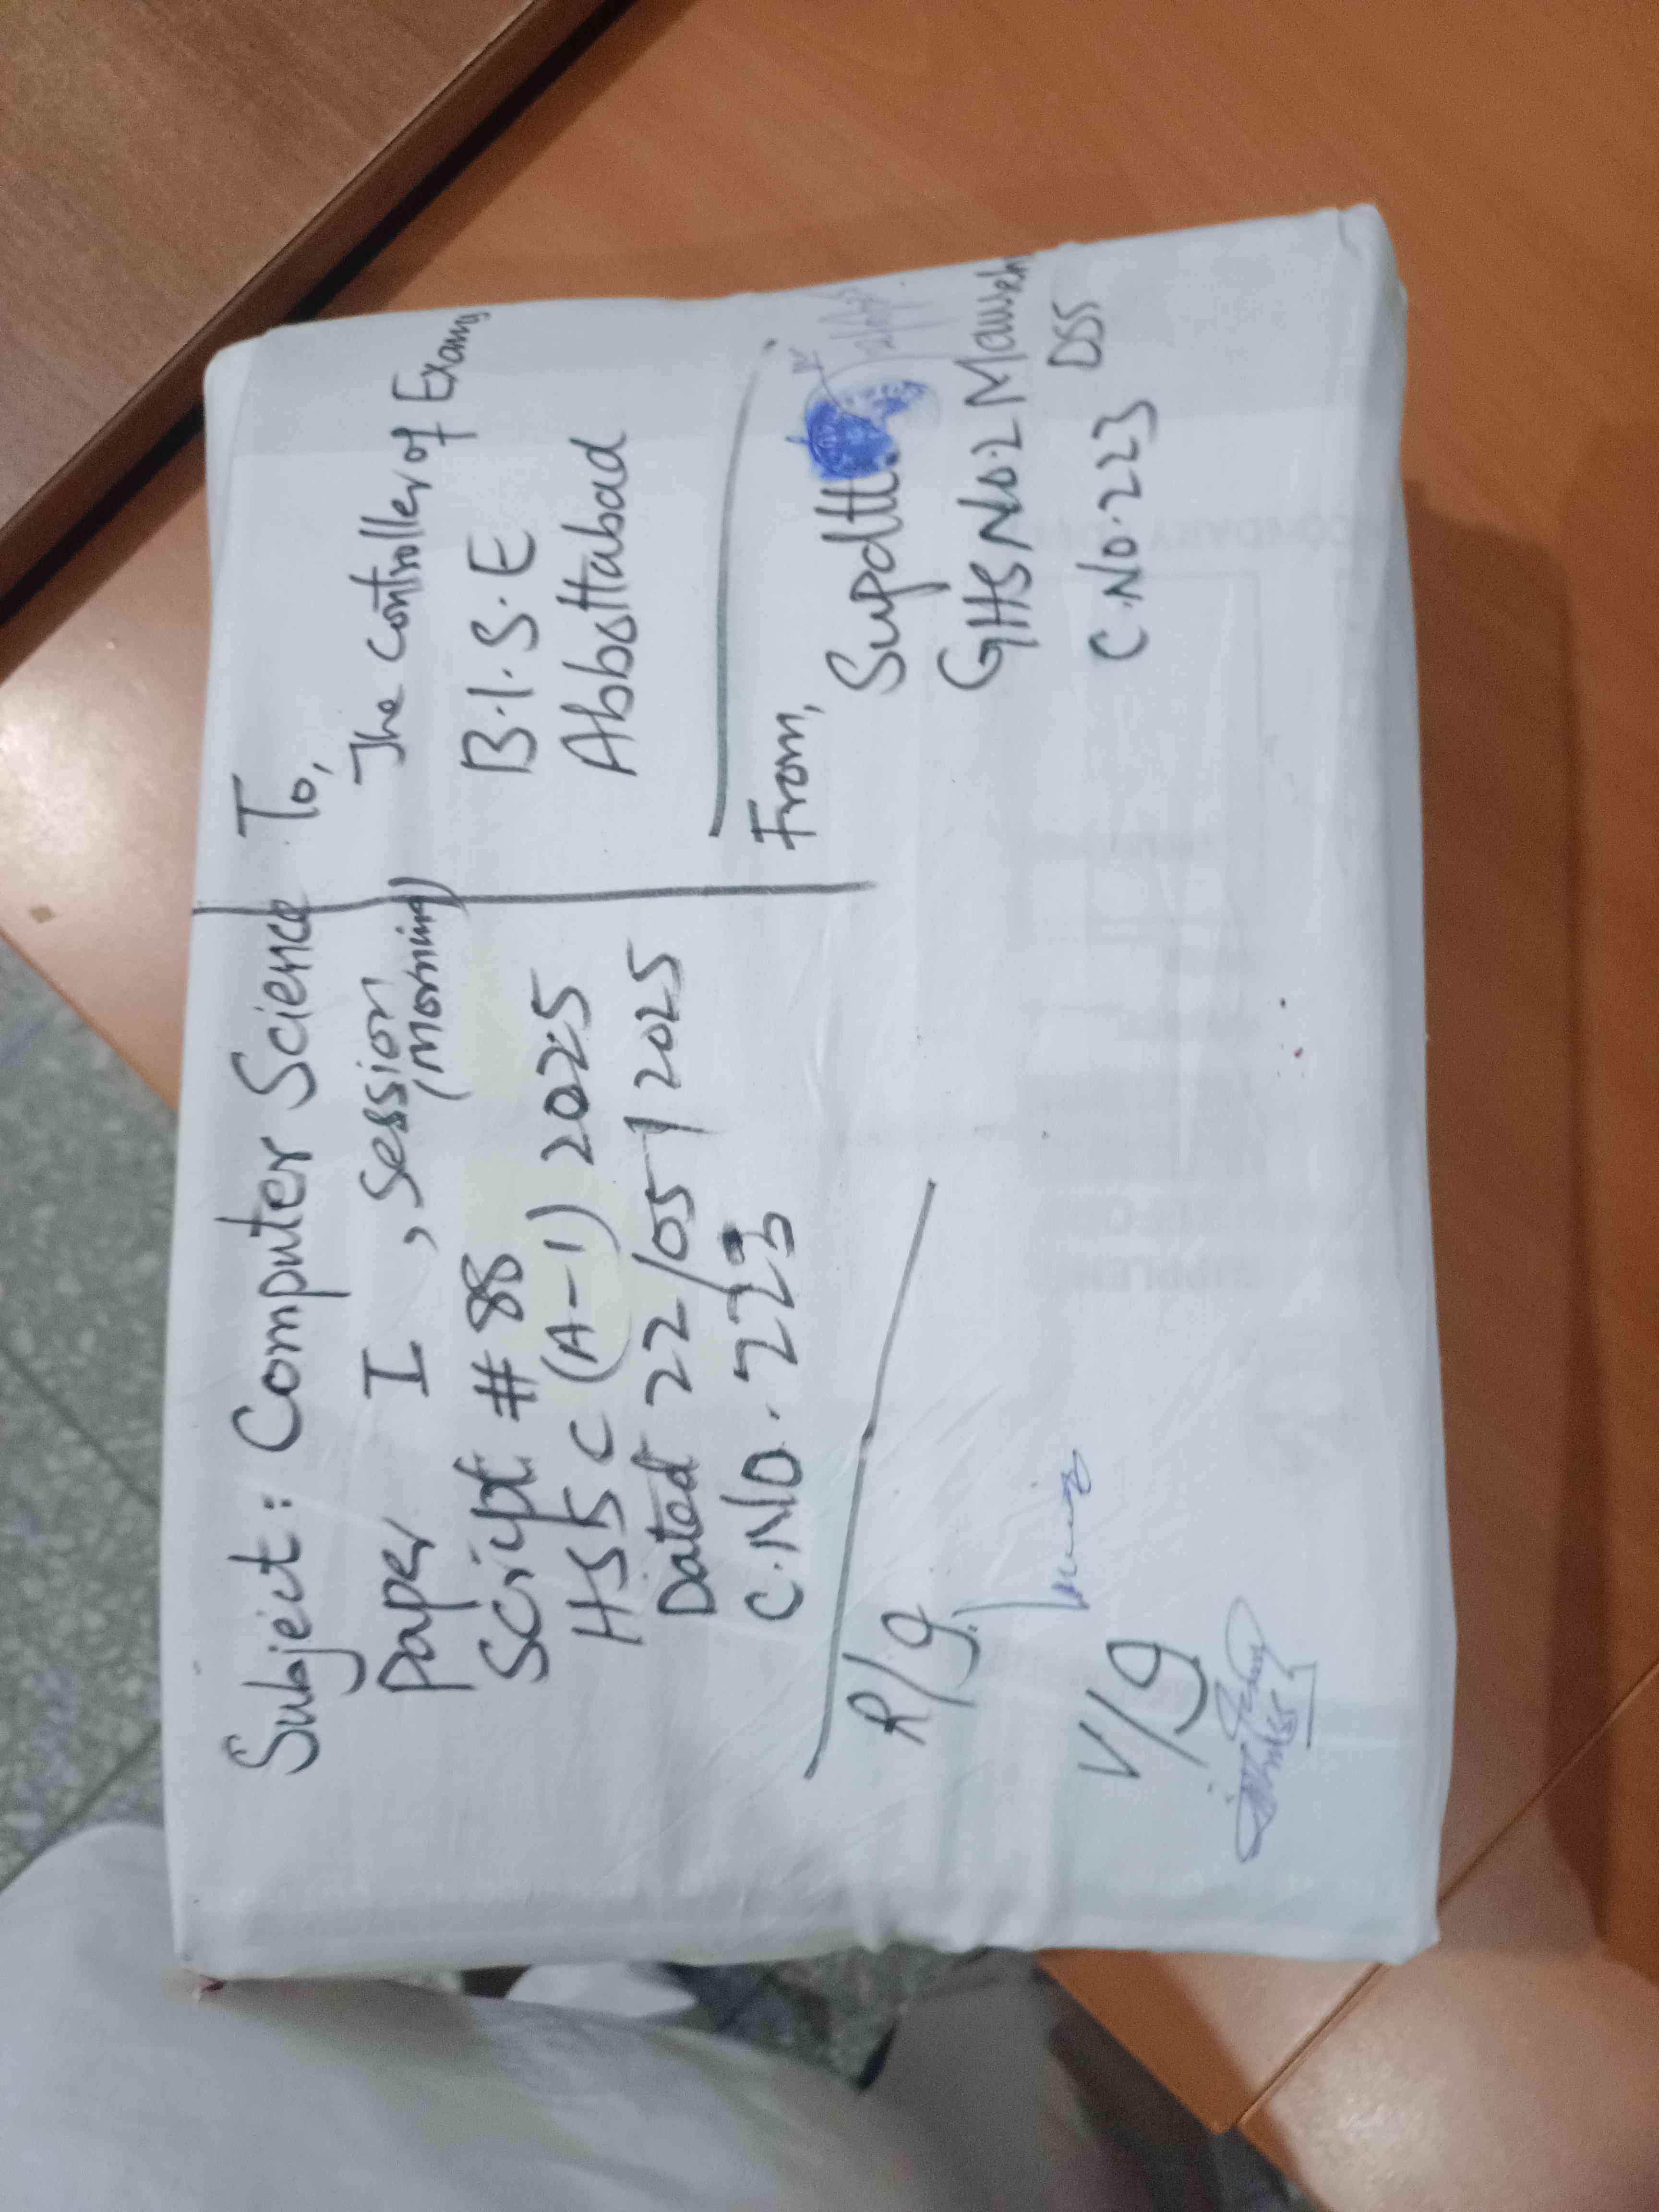 Subject: Computer Science
Paper I, Session
(Morning)
Script # 88
HSSC (A-1) 2025
Dated 22/05/2025
C.NO. 223
R/g
V/g
To,
The Controller of Exams
B.I.S.E
Abbottabad
From,
Supdtt
GHS NO.2 Mansehra
DSS
C.NO.223